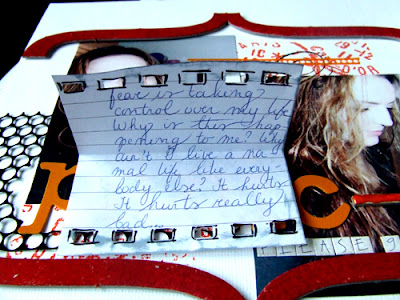 fear is taking
control over my life
Why is this hap
pening to me? Why
can't I live a no
mal life like every
body else? It hurts
It hurts really
bad...
P
C
EASE